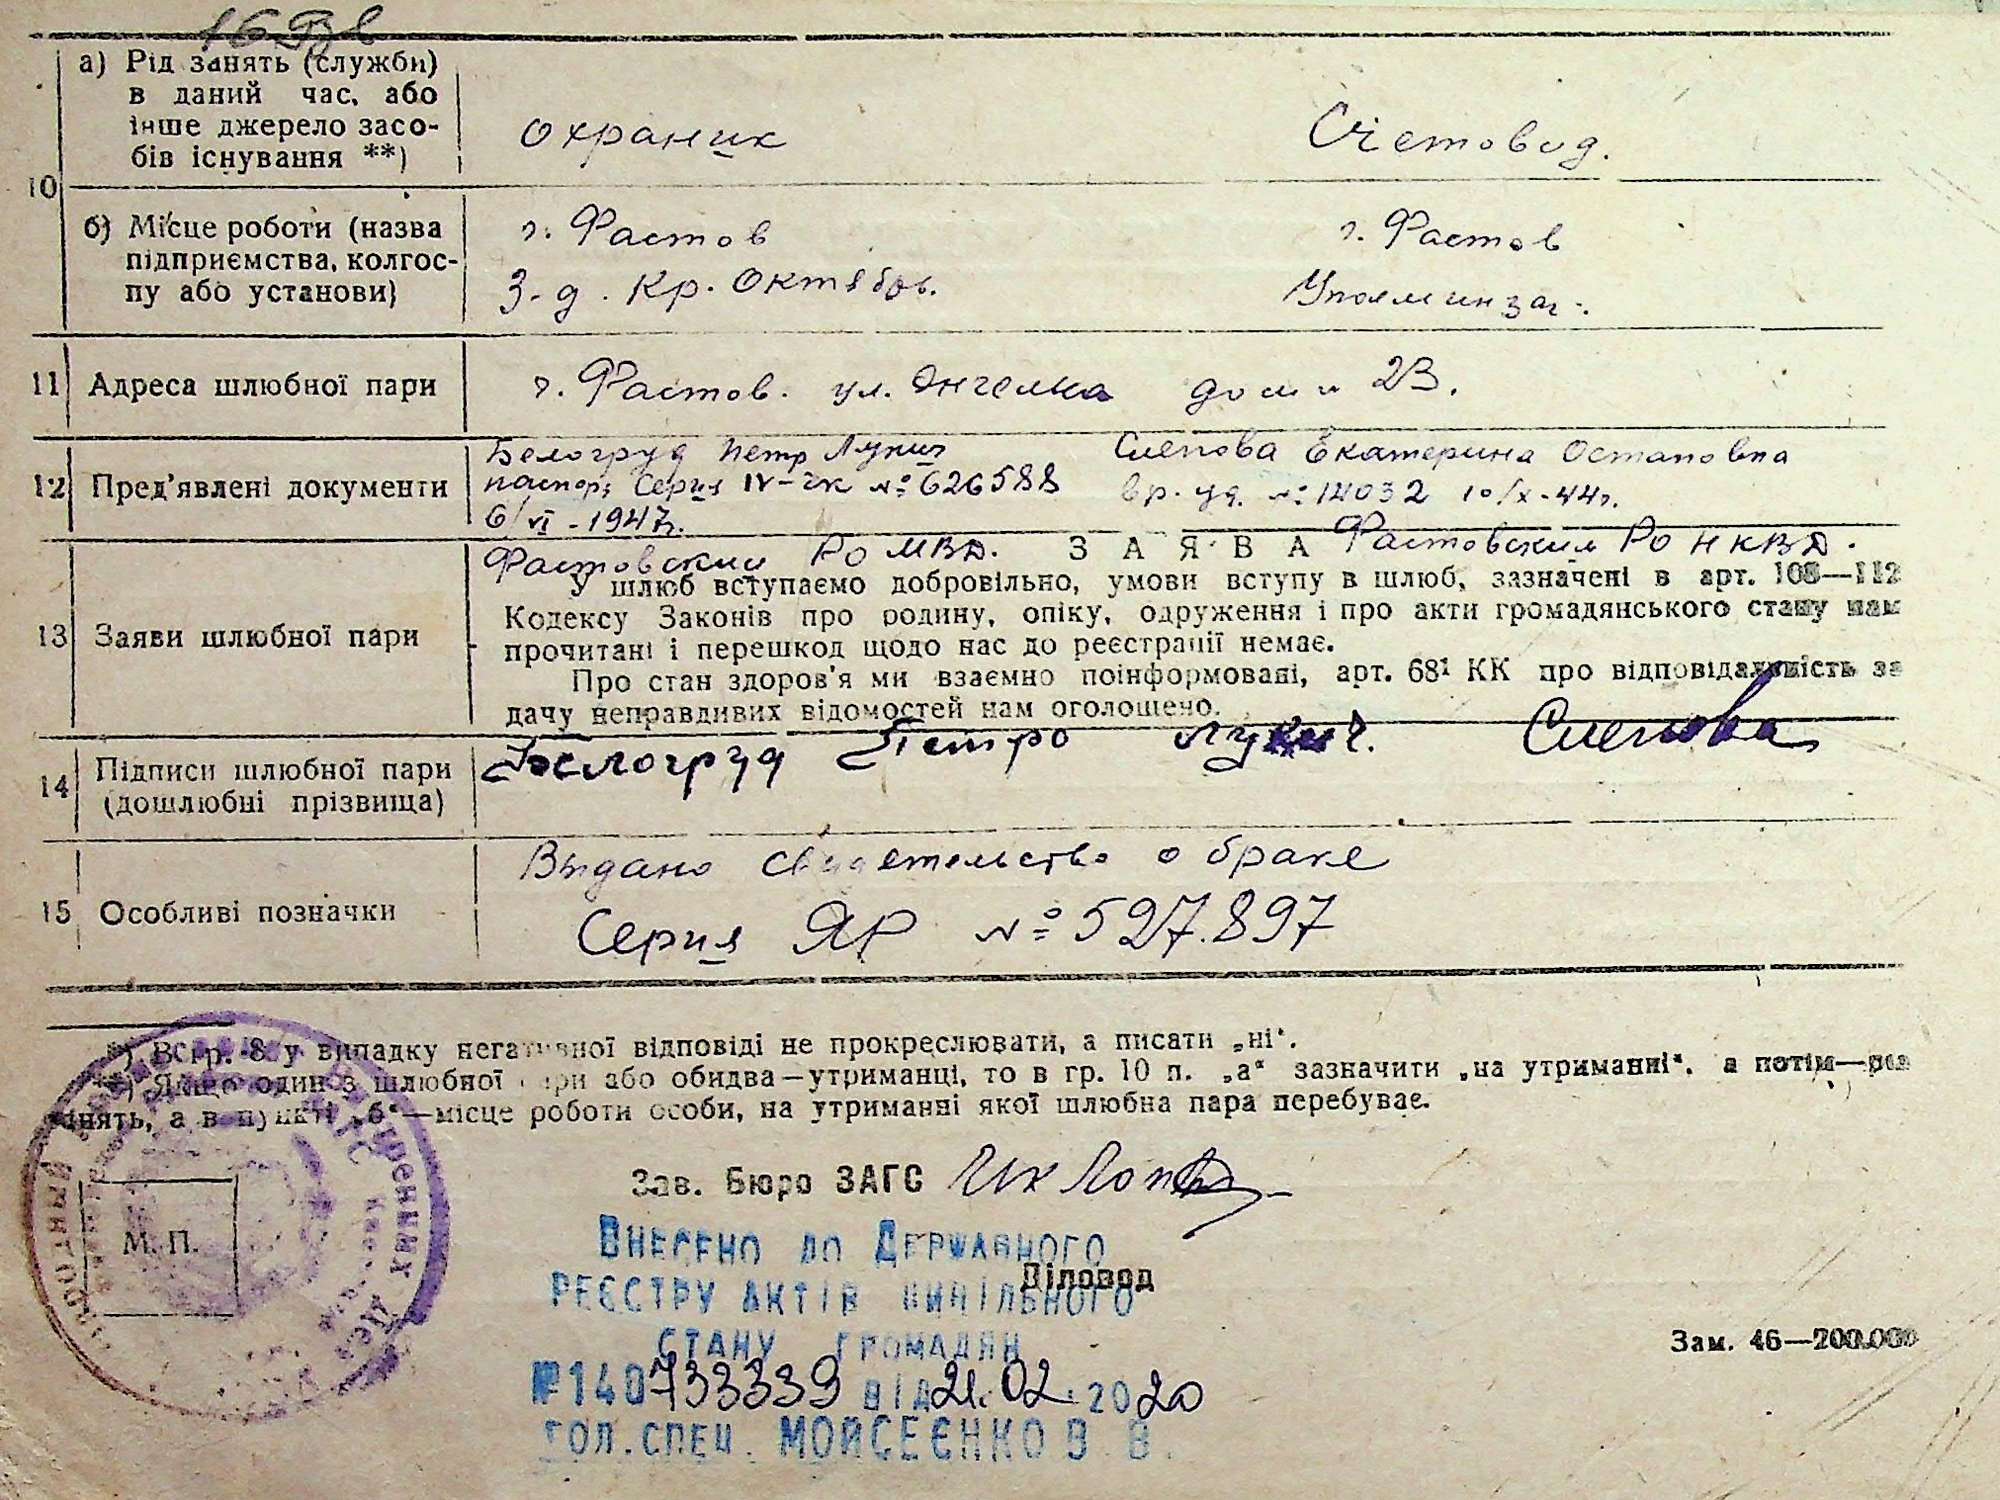 а) Рід занять (служби)
в даний час, або
інше джерело засо-
бів існування **)
10
охраник
Счетовод.
б) Місце роботи (назва
підприємства, колгос-
пу або установи)
г. Фастов
г. Фастов
З-д. Кр. Октябрь.
Уполминзаг.
11 Адреса шлюбної пари
г. Фастов. ул. Энгелса дом № 23.
12 Пред'явлені документи
Белогруд Петр Лукич
паспорт Серия IV-ЧК № 626588
6/VI-1947г.
Фастовский РО МВД.
Слепова Екатерина Остаповна
вр. уд. № 14032 10/X-44г.
Фастовским РО НКВД.
13 Заяви шлюбної пари
ЗАЯВА
У шлюб вступаємо добровільно, умови вступу в шлюб, зазначені в арт. 108—112
Кодексу Законів про родину, опіку, одруження і про акти громадянського стану нам
прочитані і перешкод щодо нас до реєстрації немає.
Про стан здоров'я ми взаємно поінформовані, арт. 68¹ КК про відповідальність за
дачу неправдивих відомостей нам оголошено.
14 Підписи шлюбної пари
(дошлюбні прізвища)
Белогруд Петро Лукич. Слепова
15 Особливі позначки
Выдано свидетельство о браке
Серия ЯР № 527.897
*) В гр. 8 у випадку негативної відповіді не прокреслювати, а писати „ні".
**) Якщо один з шлюбної пари або обидва—утриманці, то в гр. 10 п. „а" зазначити „на утриманні", а потім—рід
занять, а в пункті „б"—місце роботи особи, на утриманні якої шлюбна пара перебуває.
Зав. Бюро ЗАГС
М. П.
Діловод
Внесено до Державного
реєстру актів цивільного
стану громадян
№140733339 від 21.02.2020
гол.спец. Мойсеєнко В.В.
Зам. 46—200.000